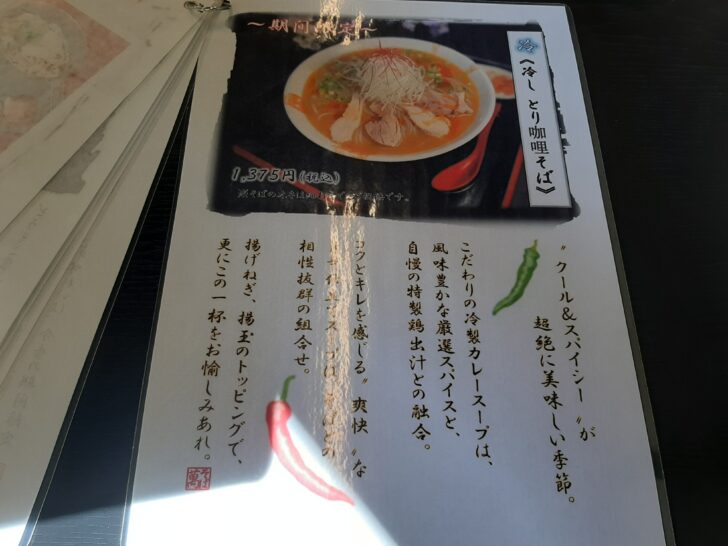 ～期間限定～
冷
《冷し とり咖哩そば》
1,375円(税込)
〝クール&スパイシー〟が
超絶に美味しい季節。
こだわりの冷製カレースープは、
風味豊かな厳選スパイスと、
自慢の特製鶏出汁との融合。
コクとキレを感じる〝爽快〟な
相性抜群の組合せ。
揚げねぎ、揚玉のトッピングで、
更にこの一杯をお愉しみあれ。